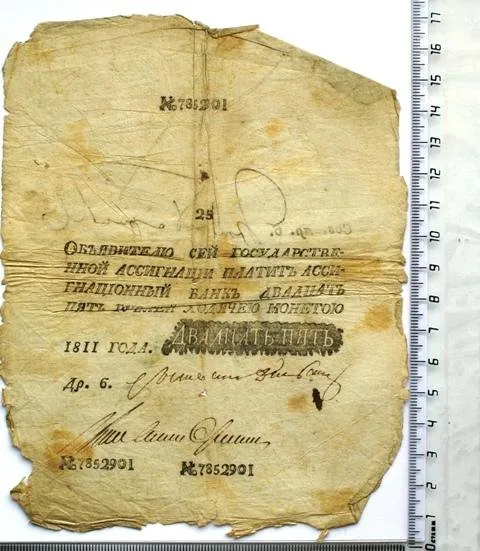 №7852901
25
Объявителю сей государстве-
нной ассигнацiи платитъ асси-
гнацiонный банкъ двадцать
пять рублей ходячею монетою
1811 года. ДВАДЦАТЬ ПЯТЬ
Др. б.
№7852901 №7852901
17
16
15
14
13
12
11
10
9
8
7
6
5
4
3
2
1
0